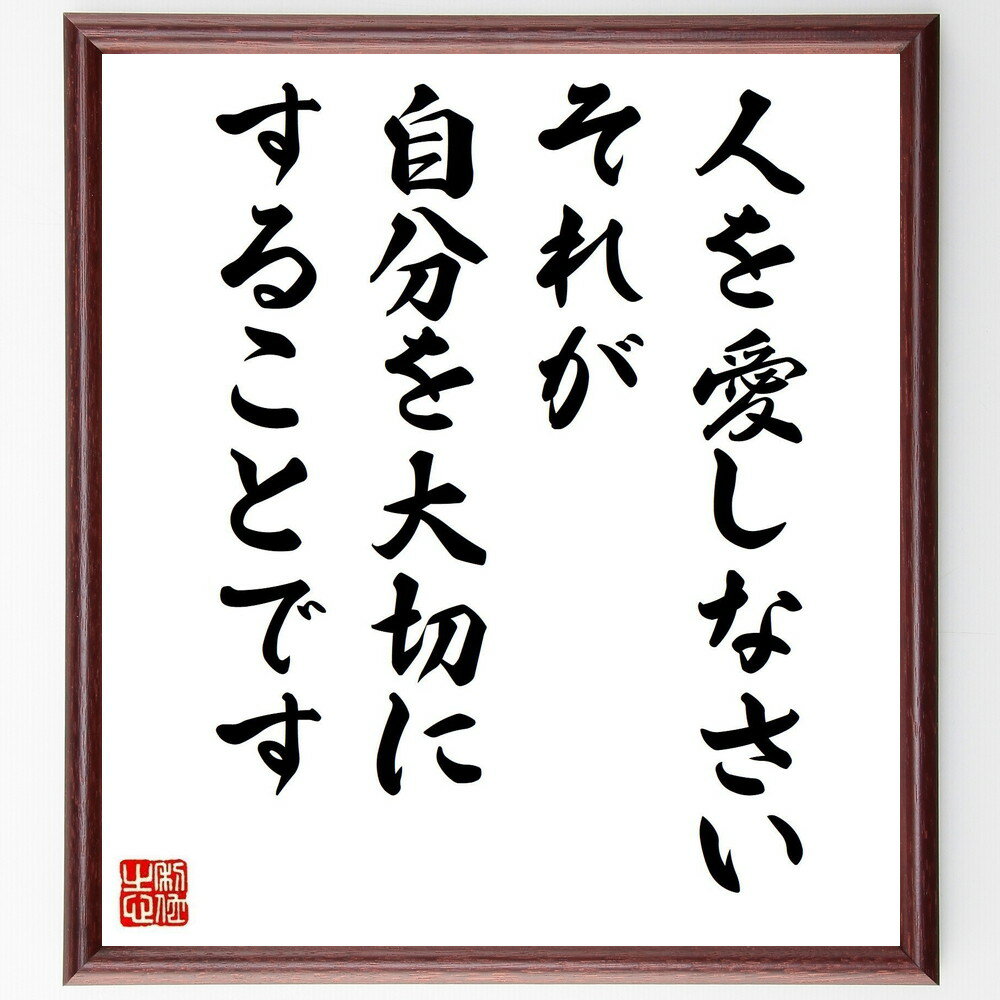 人を愛しなさい
それが
自分を大切に
することです